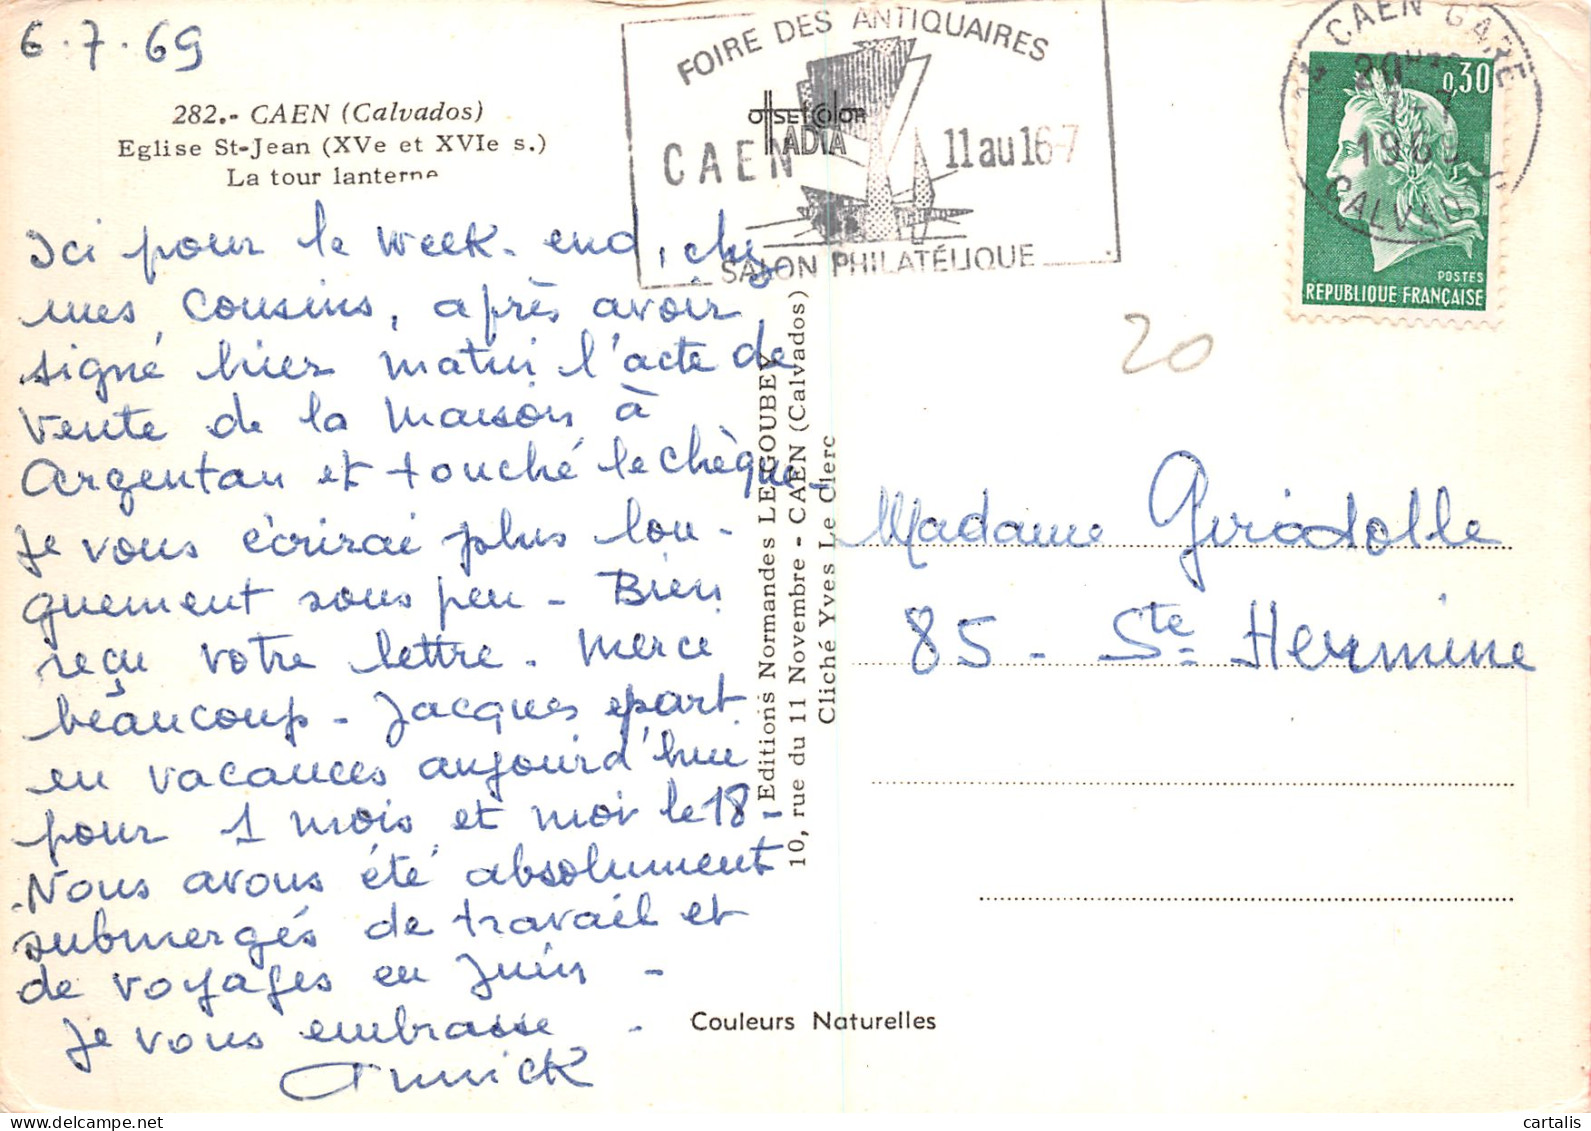 6.7.69
282.- CAEN (Calvados)
Eglise St-Jean (XVe et XVIe s.)
La tour lanterne
Ici pour le week-end, chez
mes cousins, après avoir
signé hier matin l'acte de
vente de la maison à
Argentan et touché le chèque.
Je vous écrirai plus lon-
guement sous peu - Bien
reçu votre lettre. Merci
beaucoup - Jacques part
en vacances aujourd'hui
pour 1 mois et moi le 18 -
Nous avons été absolument
submergés de travail et
de voyages en Juin -
Je vous embrasse -
Annick
FOIRE DES ANTIQUAIRES
OFFSETCOLOR
IADIA
CAEN 11 au 16-7
SALON PHILATÉLIQUE
Editions Normandes LEGOUBEY
10, rue du 11 Novembre - CAEN (Calvados)
Cliché Yves Le Clerc
Couleurs Naturelles
CAEN GARE
20H
7-7
1969
CALVADOS
0,30
POSTES
REPUBLIQUE FRANÇAISE
20
Madame Giriodolle
85 - Ste Hermine
cartalis